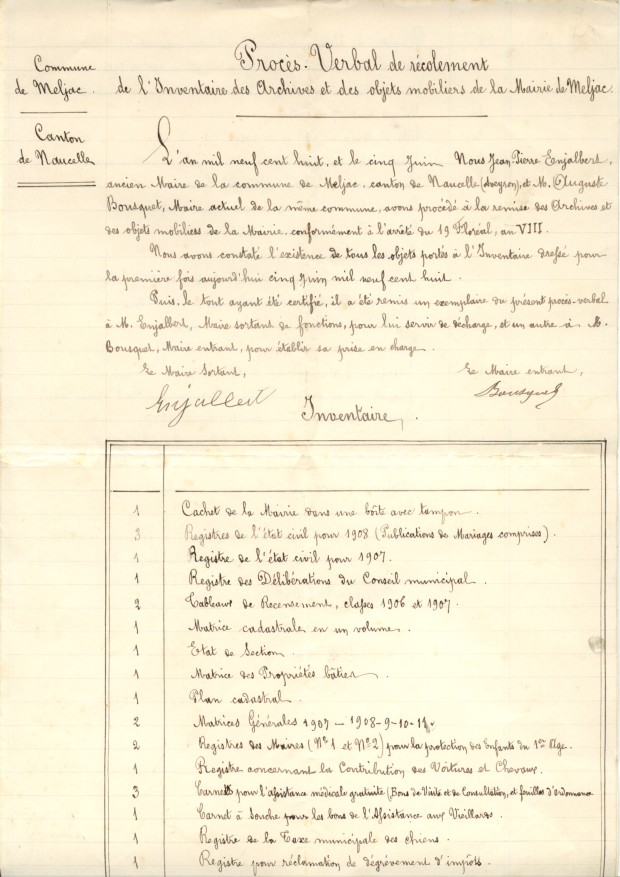 Commune
de Meljac.
Canton
de Naucelle
Procès-Verbal de récolement
de l'Inventaire des Archives et des objets mobiliers de la Mairie de Meljac.
L'an mil neuf cent huit, et le cinq Juin Nous Jean-Pierre Enjalbert,
ancien Maire de la commune de Meljac, canton de Naucelle (Aveyron), et M. Auguste
Bousquet, Maire actuel de la même commune, avons procédé à la remise des Archives et
des objets mobiliers de la Mairie, conformément à l'arrêté du 19 Floréal, an VIII.
Nous avons constaté l'existence de tous les objets portés à l'Inventaire dressé pour
la première fois aujourd'hui cinq Juin mil neuf cent huit.
Puis, le tout ayant été certifié, il a été remis un exemplaire du présent procès-verbal
à M. Enjalbert, Maire sortant de fonctions, pour lui servir de décharge, et un autre à M.
Bousquet, Maire entrant, pour établir sa prise en charge.
Le Maire Sortant, Le Maire entrant,
Enjalbert Bousquet
Inventaire,
1 Cachet de la Mairie dans une boîte avec tampon.
3 Registres de l'état civil pour 1908 (Publications de Mariages comprises).
1 Registre de l'état civil pour 1907.
1 Registre des Délibérations du Conseil municipal.
2 Tableaux de Recensement, classes 1906 et 1907.
1 Matrice cadastrale en un volume.
1 Etat de Section.
1 Matrice des Propriétés bâties.
1 Plan cadastral.
2 Matrices Générales 1907 - 1908-9-10-11.
2 Registres des Maires (N°1 et N°2) pour la protection des Enfants du 1er Age.
1 Registre concernant la Contribution des Voitures et Chevaux.
3 Carnets pour l'assistance médicale gratuite (Bons de Visite et de Consultation, et feuilles d'Ordonnance
1 Carnet à Souche pour les bons de l'Assistance aux Vieillards.
1 Registre de la Taxe municipale des chiens.
1 Registre pour réclamation de dégrèvement d'impôts.